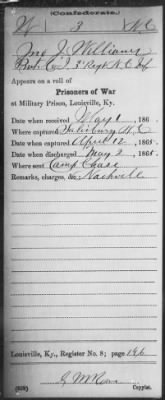 (Confederate.)
W 3 N.C.
Jno J. Williams
Pvt. Co. I, 3 Regt N.C. Inf
Appears on a roll of
Prisoners of War
at Military Prison, Louisville, Ky.
Date when received May 1, 186
Where captured Salisbury N.C.
Date when captured April 12, 1865
Date when discharged May 2, 1865.
Where sent Camp Chase
Remarks, charges, &c. Nashville
Louisville, Ky., Register No. 8; page 196
Copyist.